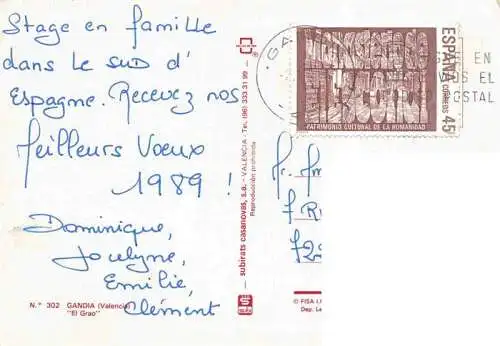 Stage en famille
dans le sud d'
Espagne. Recevez nos
Meilleurs Voeux
1989 !
Dominique,
Jocelyne,
Emilie,
Clément
N.º 302 GANDIA (Valencia)
"El Grao"
subirats casanovas, s.a. - VALENCIA - Tel. (96) 333 31 99
Reproducción prohibida
ESPAÑA
CORREOS 45
PATRIMONIO CULTURAL DE LA HUMANIDAD
EN
OS EL
POSTAL
© FISA I.
Dep. Le